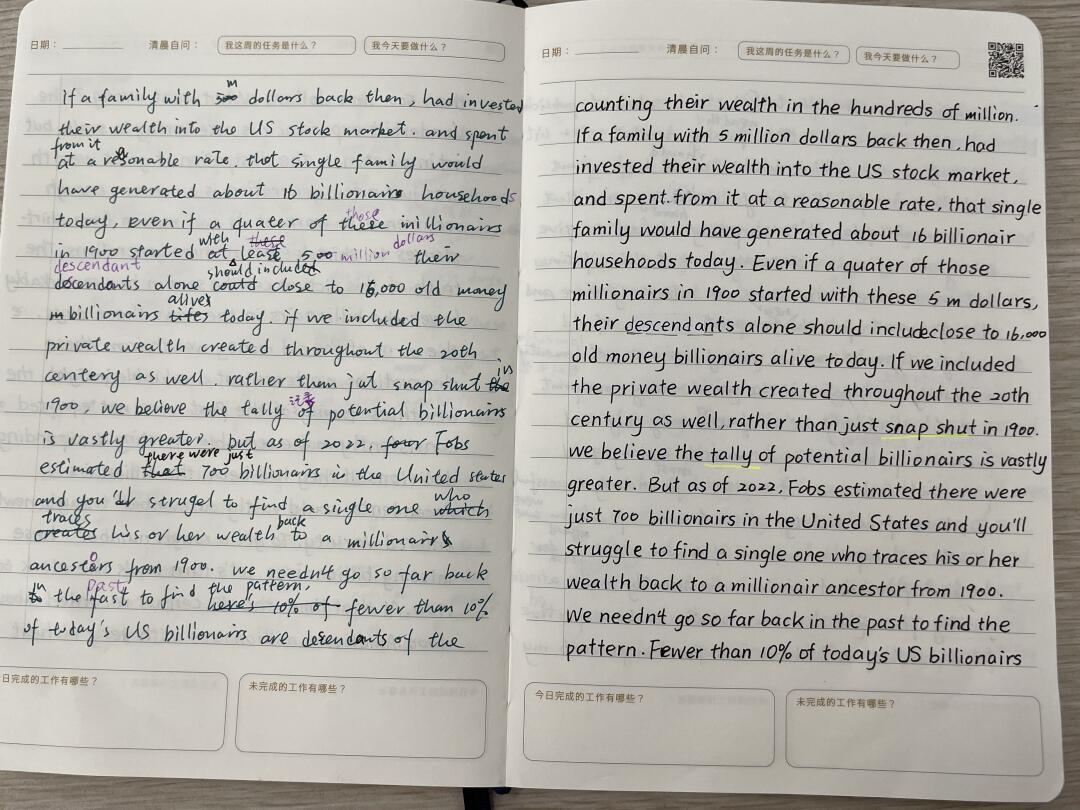 日期：
清晨自问：
我这周的任务是什么？
我今天要做什么？
m
If a family with 500 dollars back then, had invested
their wealth into the US stock market. and spent
from it
at a resonable rate, that single family would
have generated about 16 billionairs households
those
today, even if a quater of these millionairs
with these dollars
in 1900 started at least 500 million their
descendant should included
descendants alone could close to 16,000 old money
alives
billionairs lifes today. if we included the
private wealth created throughout the 20th
in
centery as well. rather them jut snap shut the
记录
1900, we believe the tally of potential billionairs
is vastly greater. but as of 2022, four Fobs
there were just
estimated that 700 billionairs in the United states
who
and you'll strugel to find a single one which
traces back
creates his or her wealth to a millionairs
o
ancesters from 1900. we needn't go so far back
in past the pattern.
to the fast to find here's 10% of fewer than 10%
of today's US billionairs are descendants of the
日完成的工作有哪些？
未完成的工作有哪些？
日期：
清晨自问：
我这周的任务是什么？
我今天要做什么？
counting their wealth in the hundreds of million.
If a family with 5 million dollars back then, had
invested their wealth into the US stock market,
and spent from it at a reasonable rate, that single
family would have generated about 16 billionair
househoods today. Even if a quater of those
millionairs in 1900 started with these 5 m dollars,
their descendants alone should includeclose to 16,000
old money billionairs alive today. If we included
the private wealth created throughout the 20th
century as well, rather than just snap shut in 1900.
we believe the tally of potential billionairs is vastly
greater. But as of 2022, Fobs estimated there were
just 700 billionairs in the United States and you'll
struggle to find a single one who traces his or her
wealth back to a millionair ancestor from 1900.
We needn't go so far back in the past to find the
pattern. Fewer than 10% of today's US billionairs
今日完成的工作有哪些？
未完成的工作有哪些？